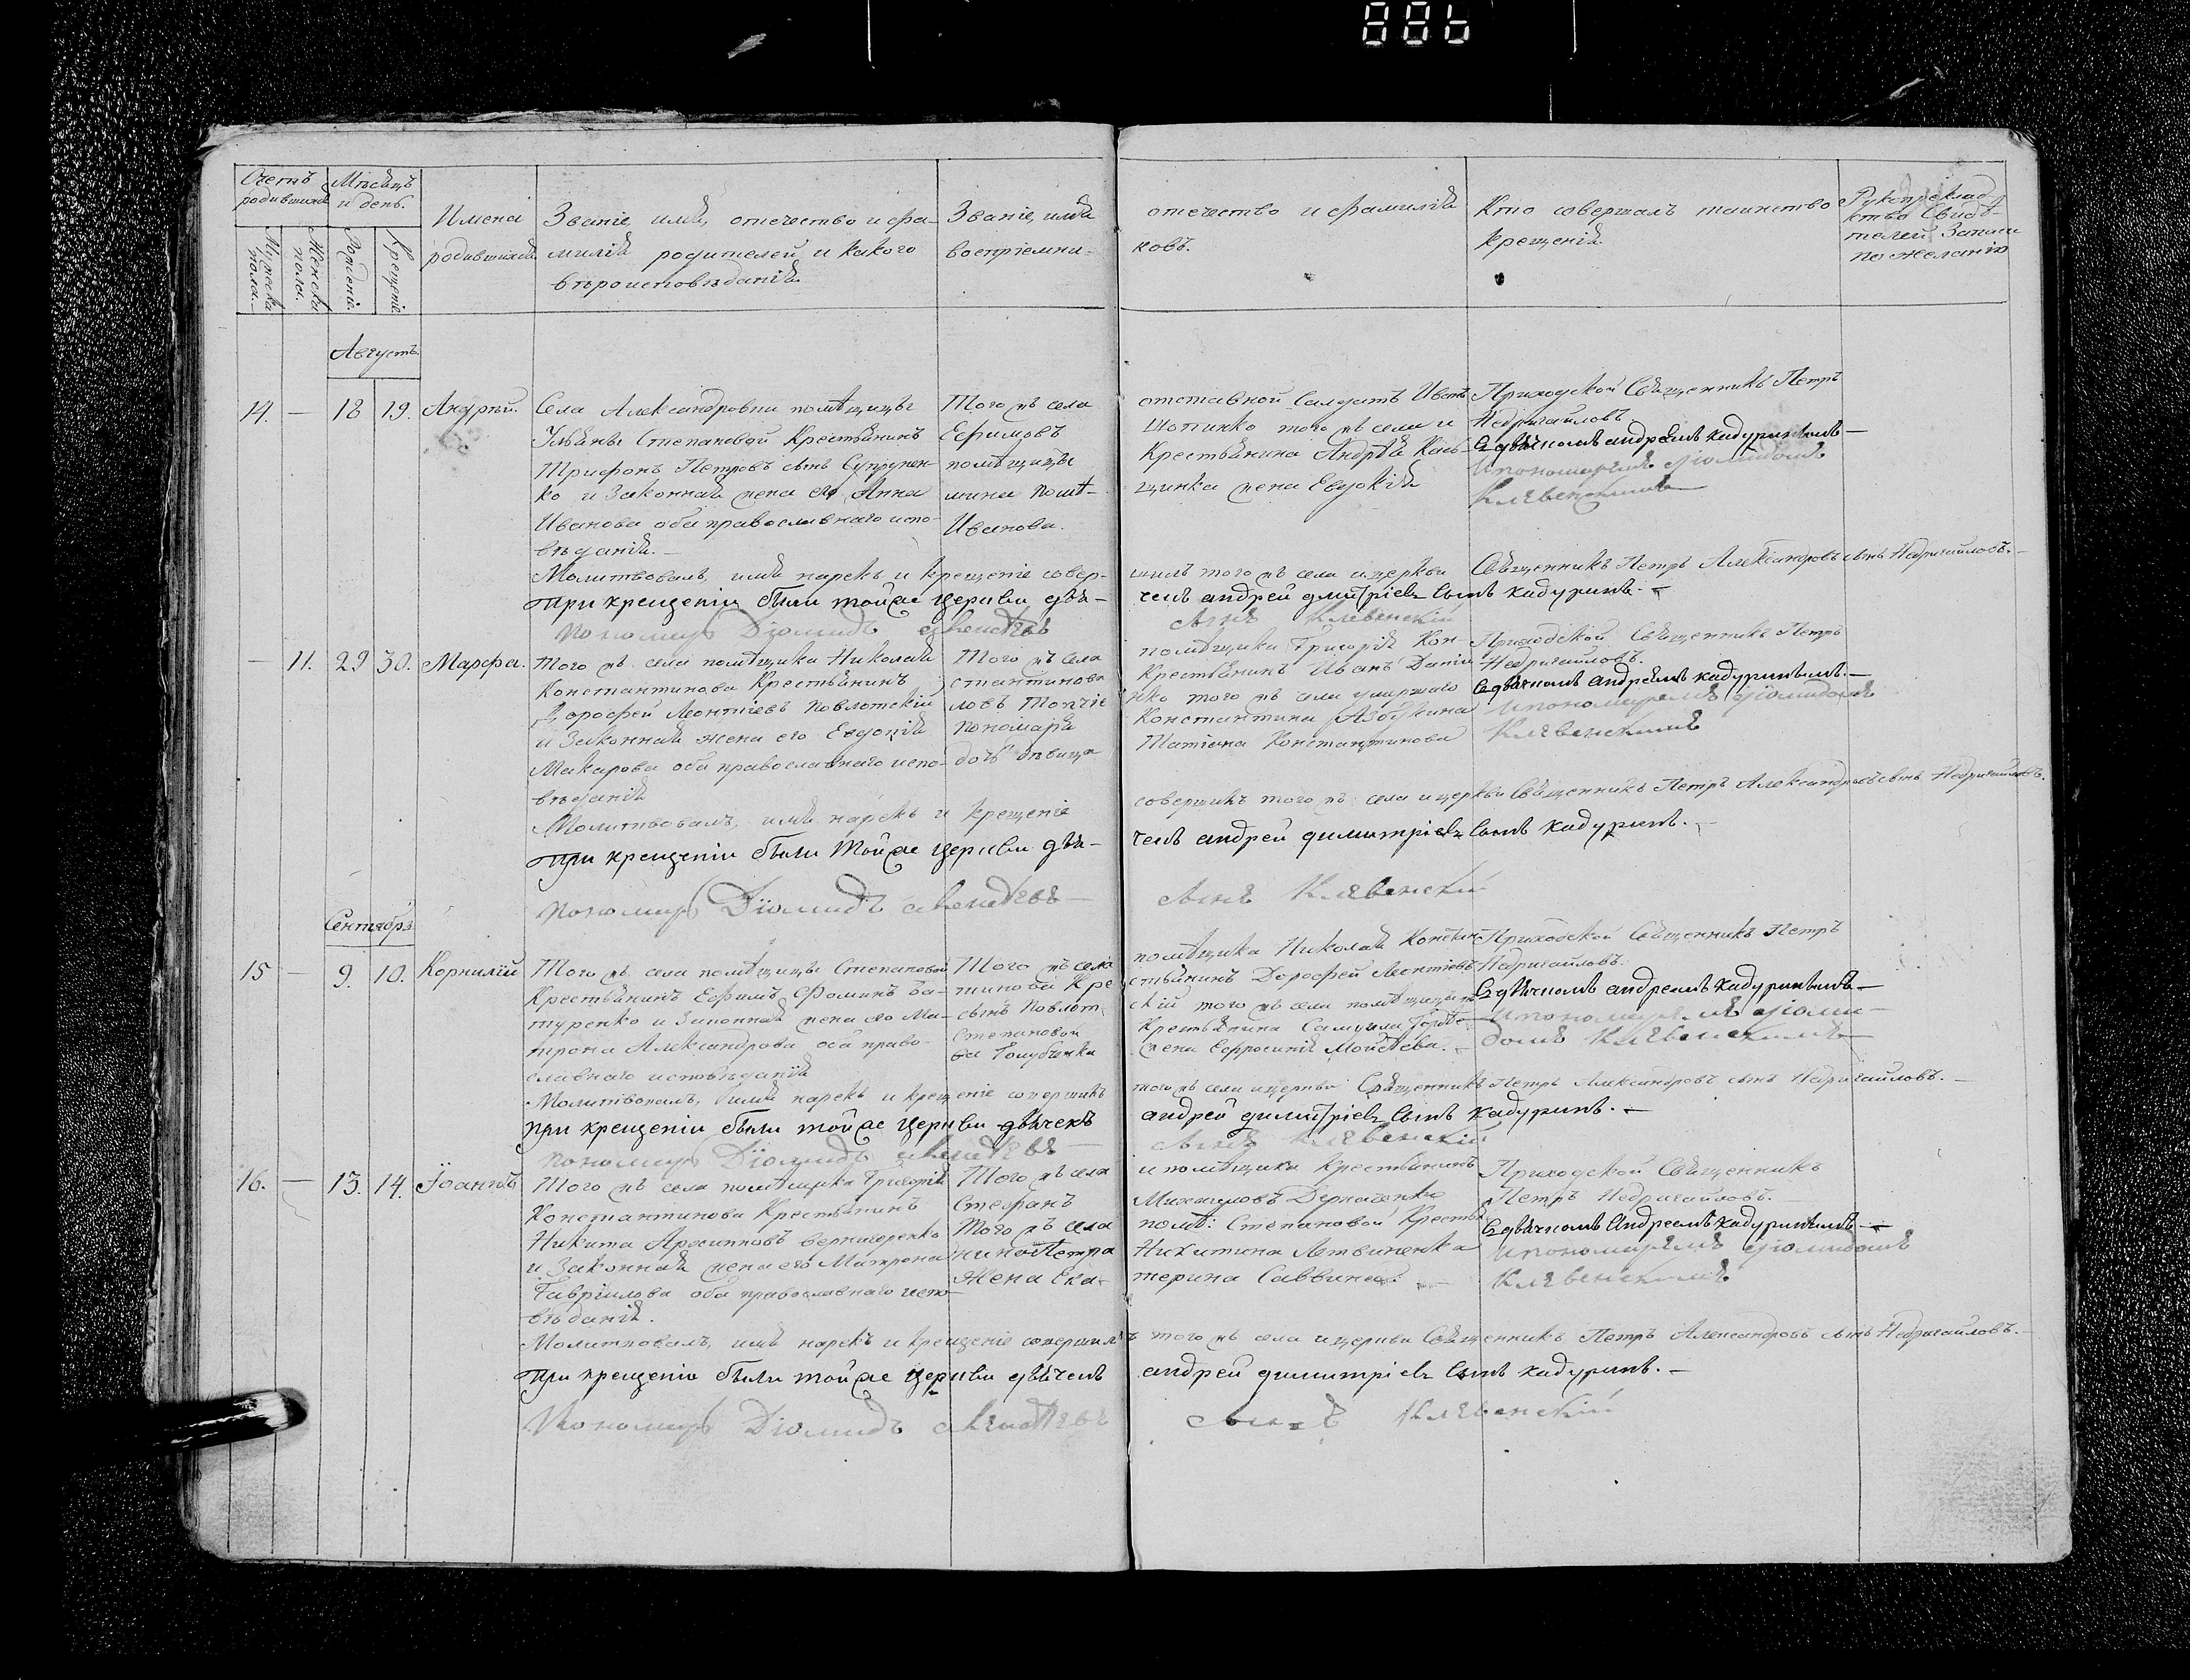 006
Счетъ родившихся
Мѣсяцъ и день.
Мужеска пола.
Женска пола.
Рожденія.
Крещенія
Имена родившихся
Званіе, имя, отечество и фа-
милія родителей и какого
вѣроисповѣданія.
Званіе, имя
воспріемни-
отечество и фамилія
ковъ.
Кто совершалъ таинство
крещенія.
Рукоприклад
ство Свидѣ-
телей Записи
по желанію
Августъ.
14. — 18 19. Андрей.
Села Александровки помѣщицы
Ульяны Степановой Крестьянинъ
Трифонъ Петровъ сынъ Супрунен-
ко и Законная жена его Анна
Иванова оба православнаго испо-
вѣданія.—
Того жъ села
Ефимовъ
помѣщицы
Иванова.
отставной Салдатъ Иванъ
того жъ села и
Крестьянина Андрѣя
жена Евдокія
Приходской Священникъ Петръ
Недригайловъ
Съ дьячкомъ андреемъ кадуринымъ—
и пономаремъ діомидомъ
Клевенскимъ
Молитвовалъ, имя нарекъ и крещеніе совер-
шилъ того жъ села и церкви Священникъ Петръ Александровъ сынъ Недригайловъ.
При крещеніи были тойже церкви дья-
чекъ андрей дмитріевъ сынъ кадуринъ.—
пономарь Діомидъ
сынъ Клевенскій
— 11. 29 30. Марфа.
Того жъ села помѣщика Николая
Константинова Крестьянинъ
Дорофей Леонтіевъ Повлотскій
и Законная жена его Евдокія
Макарова оба православнаго испо-
вѣданія
Того жъ села
стантинова
ловъ
пономаря
дочь дѣвица
помѣщика Григорія Кон-
Крестьянинъ Иванъ
того жъ села умершаго
Константина
Татіана Константинова
Приходской Священникъ Петръ
Недригайловъ.
Съ дьячкомъ андреемъ кадуринымъ.—
и пономаремъ діомидомъ
Клевенскимъ
Молитвовалъ, имя нарекъ и крещеніе
совершилъ того жъ села и церкви Священникъ Петръ Александровъ сынъ Недригайловъ.
При крещеніи были тойже церкви дья-
чекъ андрей димитріевъ сынъ кадуринъ.—
пономарь Діомидъ
сынъ Клевенскій
Сентябрь
15 — 9. 10. Корнилій
Того жъ села помѣщицы Степановой
Крестьянинъ Ефимъ Фоминъ Ба-
туренко и Законная жена его Ма-
трона Александрова оба право-
славнаго исповѣданія
Того жъ села
тинова Кре
сынъ Повлот
Степановой
Голубченка
помѣщика Николая Констан
стьянинъ Дорофей Леонтіевъ
скій того жъ села помѣщицы
Крестьянина Самуила
жена Ефросинія Мойсѣева.
Приходской Священникъ Петръ
Недригайловъ.
Съ дьячкомъ андреемъ кадуринымъ—
и пономаремъ діоми-
домъ Клевенскимъ
Молитвовалъ, имя нарекъ и крещеніе совершилъ
того жъ села и церкви Священникъ Петръ Александровъ сынъ Недригайловъ.—
При крещеніи были тойже церкви дьячекъ
андрей димитріевъ сынъ кадуринъ.—
пономарь Діомидъ
сынъ Клевенскій
16. — 13. 14. Іоаннъ
Того жъ села помѣщика Григорія
Константинова Крестьянинъ
Никита Архиповъ вернигоренко
и Законная жена его Матрона
Гаврилова оба православнаго испо-
вѣданія.
Того жъ села
Стефанъ
Того жъ села
нина Петра
жена Ека-
и помѣщика Крестьянинъ
Михаиловъ
помѣ: Степановой Крестья
Никитина Летвиненка
терина Саввина.
Приходской Священникъ
Петръ Недригайловъ.
Съ дьячкомъ Андреемъ кадуринымъ—
и пономаремъ діомидомъ
Клевенскимъ
Молитвовалъ, имя нарекъ и крещеніе совершилъ
того жъ села и церкви Священникъ Петръ Александровъ сынъ Недригайловъ.
При крещеніи были тойже церкви дьячекъ
андрей димитріевъ сынъ кадуринъ.—
пономарь Діомидъ
сынъ Клевенскій